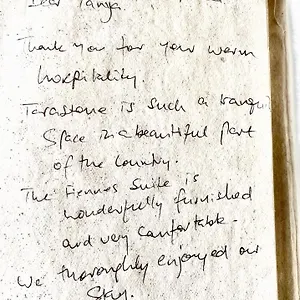 Dear Tanya
Thank you for your warm
hospitality.
Tarastone is such a tranquil
space in a beautiful part
of the country.
The Fiennes Suite is
wonderfully furnished
and very comfortable.
We thoroughly enjoyed our
Stay.